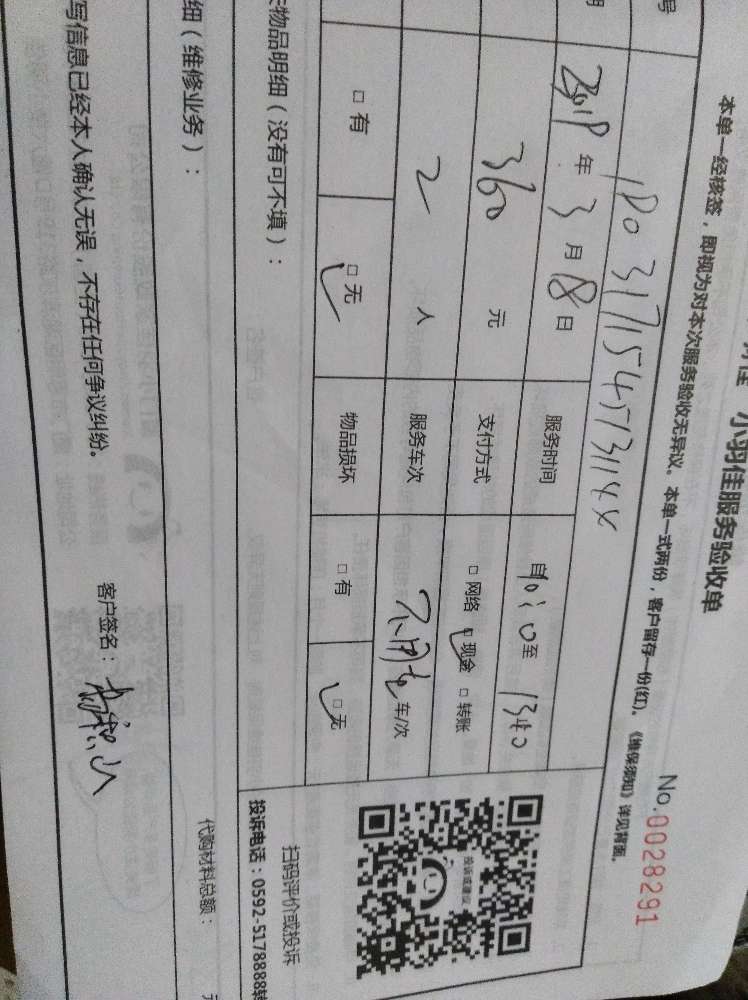 小羽佳服务验收单
No.0028291
本单一经核签，即视为对本次服务验收无异议。本单一式两份，客户留存一份(红)。《维保须知》详见背面。
号
年 3 月 8 日 服务时间 自 至 1340
360 元 支付方式 □ 网络 □ 现金 □ 转账
2 人 服务车次 不用车 车/次
□ 有 □ 无 物品损坏 □ 有 □ 无
物品明细（没有可不填）：
扫码评价或投诉
投诉电话：0592-5178888转
投诉或建议
细（维修业务）：
代购材料总额：
写信息已经本人确认无误，不存在任何争议纠纷。
客户签名：